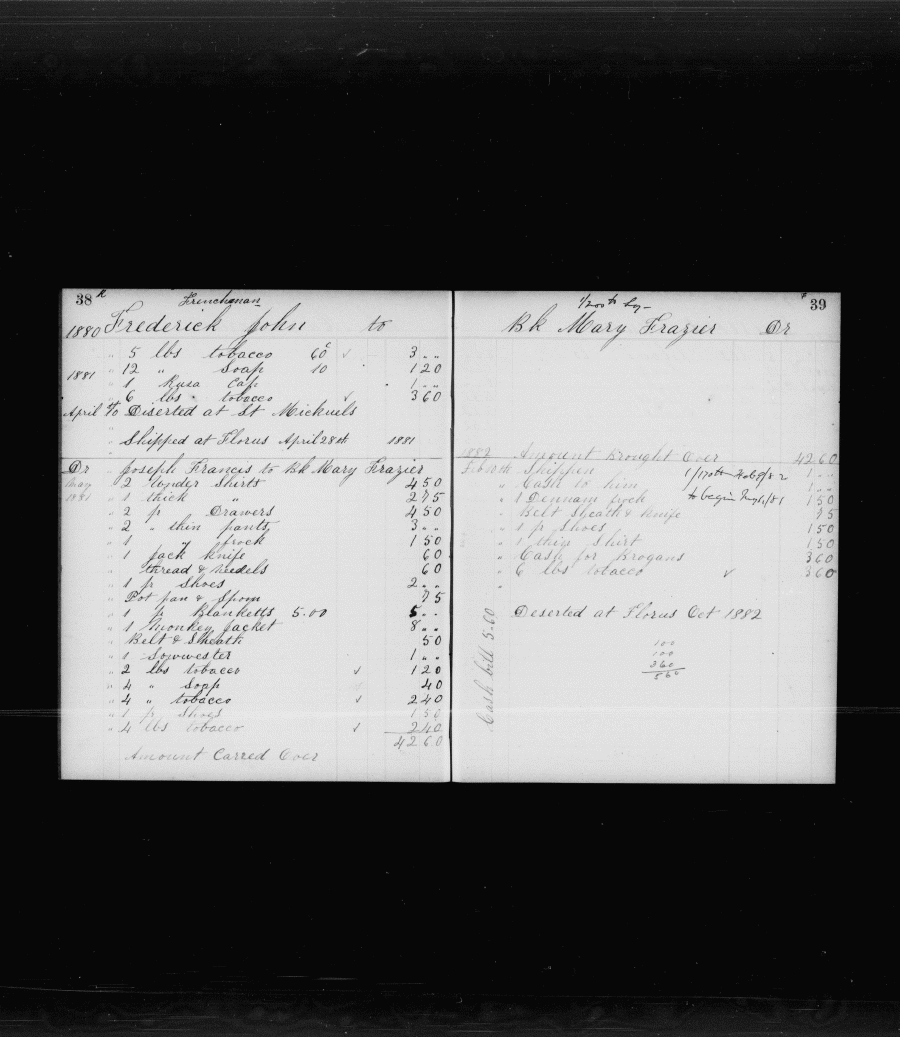 38
Frenchman
1880 Frederick John to
" 5 lbs tobacco 60c 3 " "
1881 " 12 " Soap 10 1 20
" 1 Rusa Cap 1 " "
" 6 lbs tobacco 3 60
April Diserted at St Mickuels
" Shipped at Florus April 28th 1881
Dr Joseph Francis to Bk Mary Frazier
May " 2 Under Shirts 4 50
1881 " 1 thick " 2 75
" 2 p Drawers 4 50
" 2 " thin pants 3 " "
" 1 " frock 1 50
" 1 Jack knife 60
thread & Needels 60
" 1 p Shoes 2 " "
" Pot pan & Spoon 75
" 1 p Blanketts 5.00 5 " "
" 1 Monkey Jacket 8 " "
" Belt & Sheath 50
" 1 Sowwester 1 " "
" 2 lbs tobacco 1 20
" 4 " Soap 40
" 4 " tobacco 2 40
" 1 p Shoes 1 50
" 4 lbs tobacco 2 40
42 60
Amount Carred Over
39
1/200th lay
Bk Mary Frazier Dr
1882 Amount Brought Over 42 60
Shippen 1 " "
" Cash to him 1 " "
" 1 Dennam frock to begin 1 50
" Belt Sheath & knife 75
" 1 p Shoes 1 50
" 1 Shirt 1 50
" Cash for Brogans 3 60
" 6 lbs tobacco 3 60
Deserted at Florus Oct 1882
100
100
360
560
Cash bill 5.60